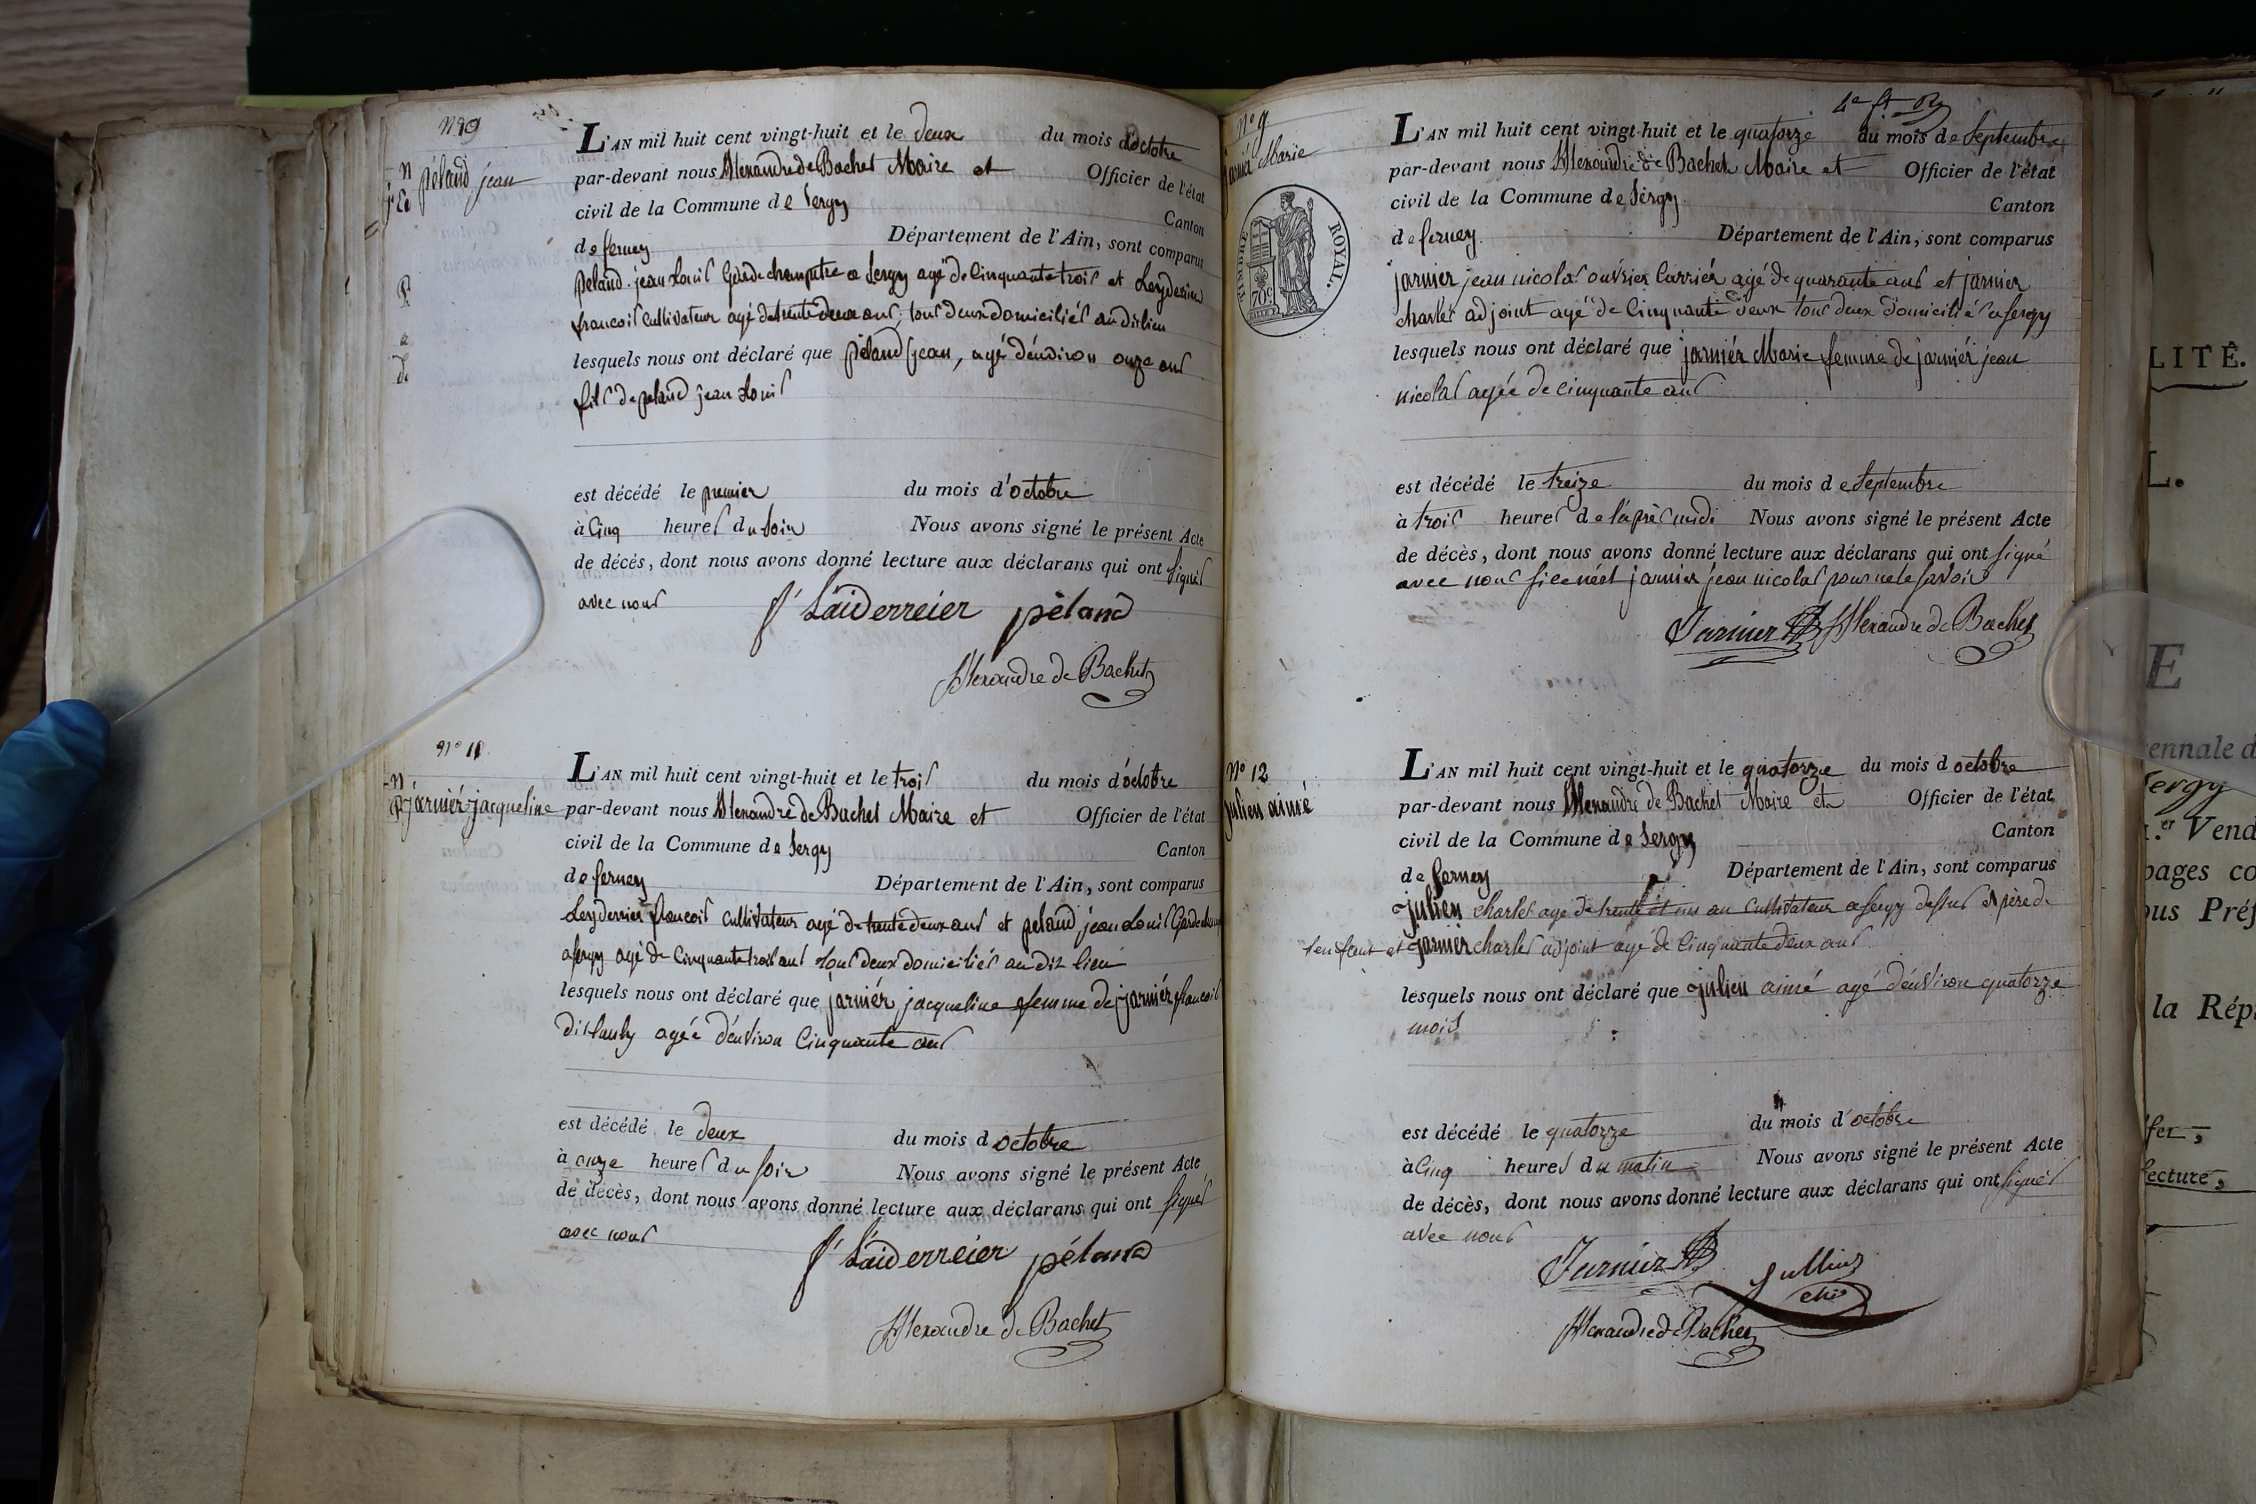 N° 10
péland jean
L'AN mil huit cent vingt-huit et le deux du mois d'octobre
par-devant nous Alexandre de Bachet Maire et Officier de l'état
civil de la Commune de Sergy Canton
de ferney Département de l'Ain, sont comparus
péland jean Louis Garde champetre a Sergy agé de Cinquante trois et Leyderier
francois Cultivateur agé de trente deux ans, tous deux domiciliés au dit lieu
lesquels nous ont déclaré que péland jean, agé d'environ onze ans
fils de péland jean Louis
est décédé le premier du mois d'octobre
à Cinq heures du soir Nous avons signé le présent Acte
de décès, dont nous avons donné lecture aux déclarans qui ont signés
avec nous
f° Laiderreier péland
Alexandre de Bachet
N° 11
jarniér jacqueline
L'AN mil huit cent vingt-huit et le trois du mois d'octobre
par-devant nous Alexandre de Bachet Maire et Officier de l'état
civil de la Commune de Sergy Canton
de ferney Département de l'Ain, sont comparus
Leyderrier francois Cultivateur agé de trente deux ans et péland jean Louis Garde
a sergy agé de Cinquante trois ans tous deux domiciliés au dit lieu
lesquels nous ont déclaré que jarniér jacqueline femme de jarniér francois
dit agée d'environ Cinquante ans
est décédé le deux du mois d octobre
à onze heures du soir Nous avons signé le présent Acte
de décès, dont nous avons donné lecture aux déclarans qui ont signés
avec nous
f° Laiderreier péland
Alexandre de Bachet
N° 9
Marie
TIMBRE ROYAL.
70c
L'AN mil huit cent vingt-huit et le quatorze du mois de Septembre
par-devant nous Alexandre de Bachet Maire et Officier de l'état
civil de la Commune de Sergy Canton
de ferney Département de l'Ain, sont comparus
jarnier jean nicolas ouvrier Carriér agé de quarante ans et jarnier
charles adjoint agé de Cinquante deux tous deux domicilié a sergy
lesquels nous ont déclaré que jarniér Marie femme de jarniér jean
nicolas agée de cinquante ans
est décédé le treize du mois de Septembre
à trois heures de l'après midi Nous avons signé le présent Acte
de décès, dont nous avons donné lecture aux déclarans qui ont signé
avec nous si ce nést jarnier jean nicolas pour ne le savoir
Jarnier Alexandre de Bachet
N° 12
julien aimé
L'AN mil huit cent vingt-huit et le quatorze du mois d octobre
par-devant nous Alexandre de Bachet Maire et Officier de l'état
civil de la Commune de Sergy Canton
de ferney Département de l'Ain, sont comparus
julien charles agé de trente et un an Cultivateur a sergy dessus et père de
l'enfant et jarniér charles adjoint agé de Cinquante deux ans
lesquels nous ont déclaré que julien aimé agé d'environ quatorze
mois
est décédé le quatorze du mois d'octobre
à Cinq heures du matin Nous avons signé le présent Acte
de décès, dont nous avons donné lecture aux déclarans qui ont signés
avec nous
Jarnier Jullien
chs
Alexandre de Bachet
LITÉ.
L.
E
ennale d
Sergy
Vend
pages co
ous Préf
la Rép
fer,
lecture,